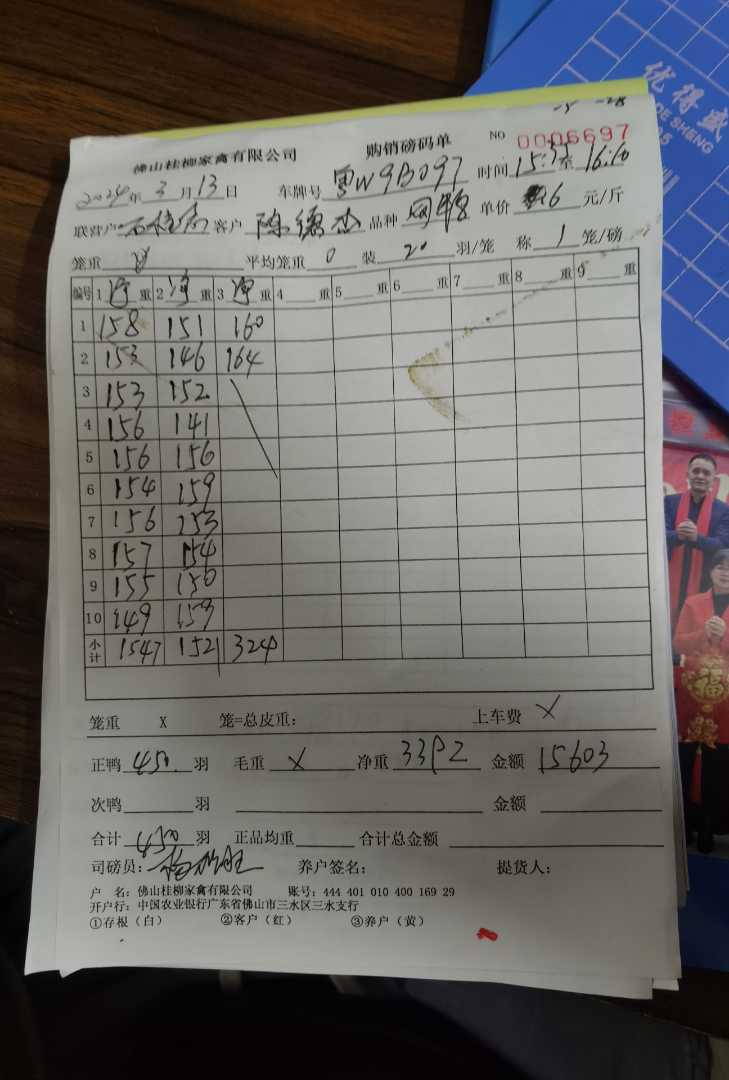 优得盛
DE SHENG
-5 -28
佛山桂柳家禽有限公司 购销磅码单 NO 0006697
2024年3月13日 车牌号 粤W9B097 时间 15:35至16:10
联营户 客户 陈德杰 品种 单价 6 元/斤
笼重 平均笼重 0 装 20 羽/笼 称 1 笼/磅
编号 1 净重 2 净重 3 净重 4 重 5 重 6 重 7 重 8 重 9 重
1 158 151 160
2 153 146 164
3 153 152
4 156 141
5 156 156
6 154 159
7 156 153
8 157 154
9 155 150
10 149 159
小计 1547 1521 324
笼重 X 笼=总皮重: 上车费 X
正鸭 450 羽 毛重 X 净重 3392 金额 15603
次鸭 羽 金额
合计 450 羽 正品均重 合计总金额
司磅员: 养户签名: 提货人:
户 名: 佛山桂柳家禽有限公司 账号: 444 401 010 400 169 29
开户行: 中国农业银行广东省佛山市三水区三水支行
①存根(白) ②客户(红) ③养户(黄)
福